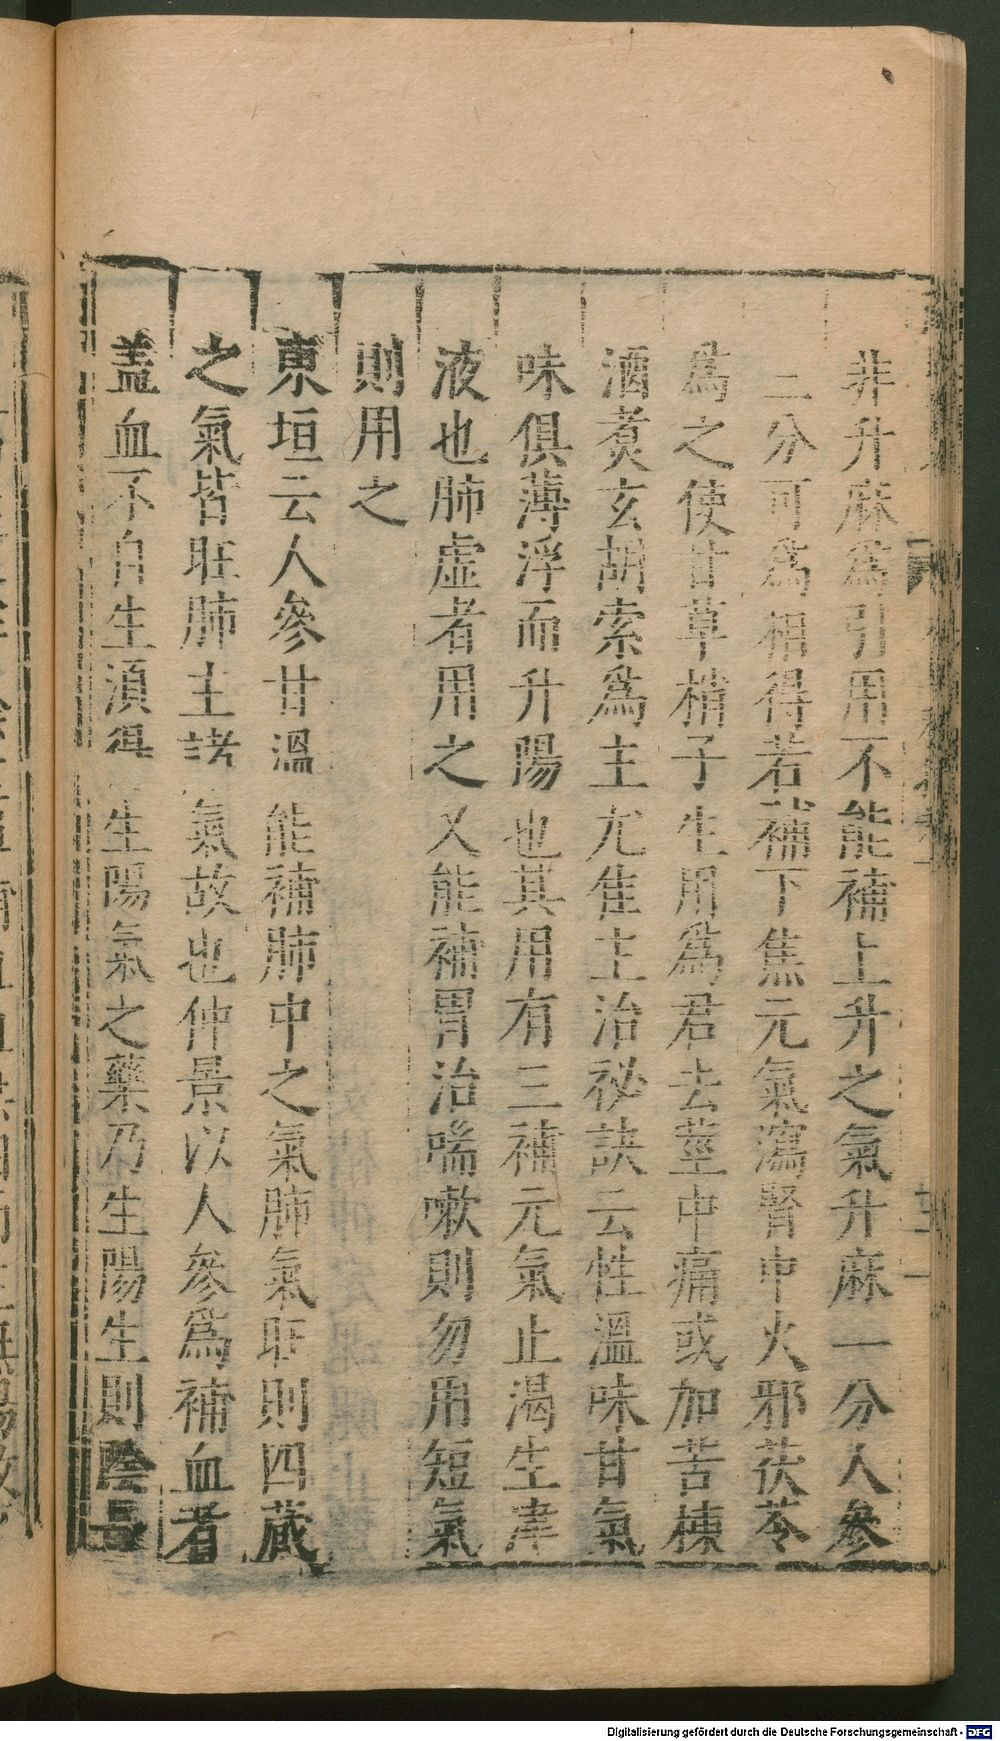 非升麻為引用不能補上升之氣升麻一分人參
二分可為相得若補下焦元氣瀉腎中火邪茯苓
為之使甘草梢子生用為君去莖中痛或加苦楝
酒煑玄胡索為主尤隹主治祕訣云性溫味甘氣
味俱薄浮而升陽也其用有三補元氣止渴生津
液也肺虛者用之又能補胃治喘嗽則勿用短氣
則用之
東垣云人參甘溫能補肺中之氣肺氣旺則四蔵
之氣皆旺肺主諸氣故也仲景以人參為補血者
盖血不自生湏得生陽氣之藥乃生陽生則陰長
Digitalisierung gefördert durch die Deutsche Forschungsgemeinschaft - DFG